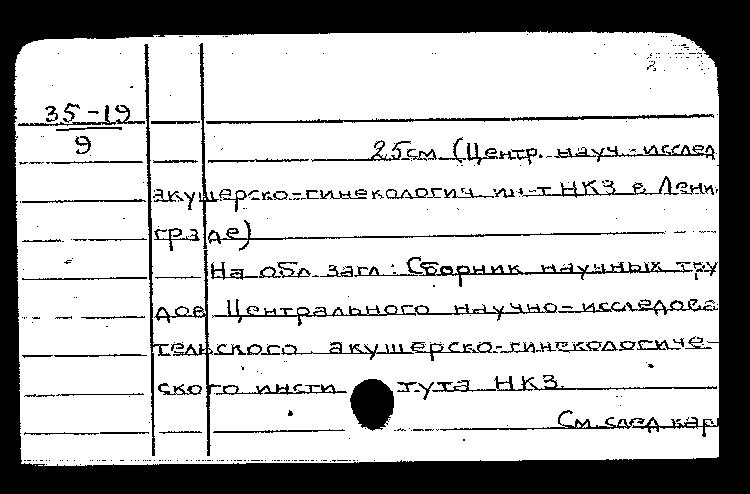 2
35-19
9
25см (Центр. науч.-исслед
акушерско-гинекологич. ин-т НКЗ в Лени
граде)
На обл. загл.: Сборник научных тру
дов Центрального научно-исследова
тельского акушерско-гинекологиче-
ского инсти тута НКЗ.
См. след. кар